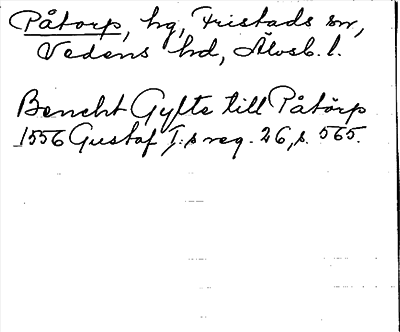 Påtorp, hg, Fristads sn,
Vedens hd, Älvsb. l.
Bencht Gylte till Påtörp
1556 Gustaf I:s reg. 26, s. 565.